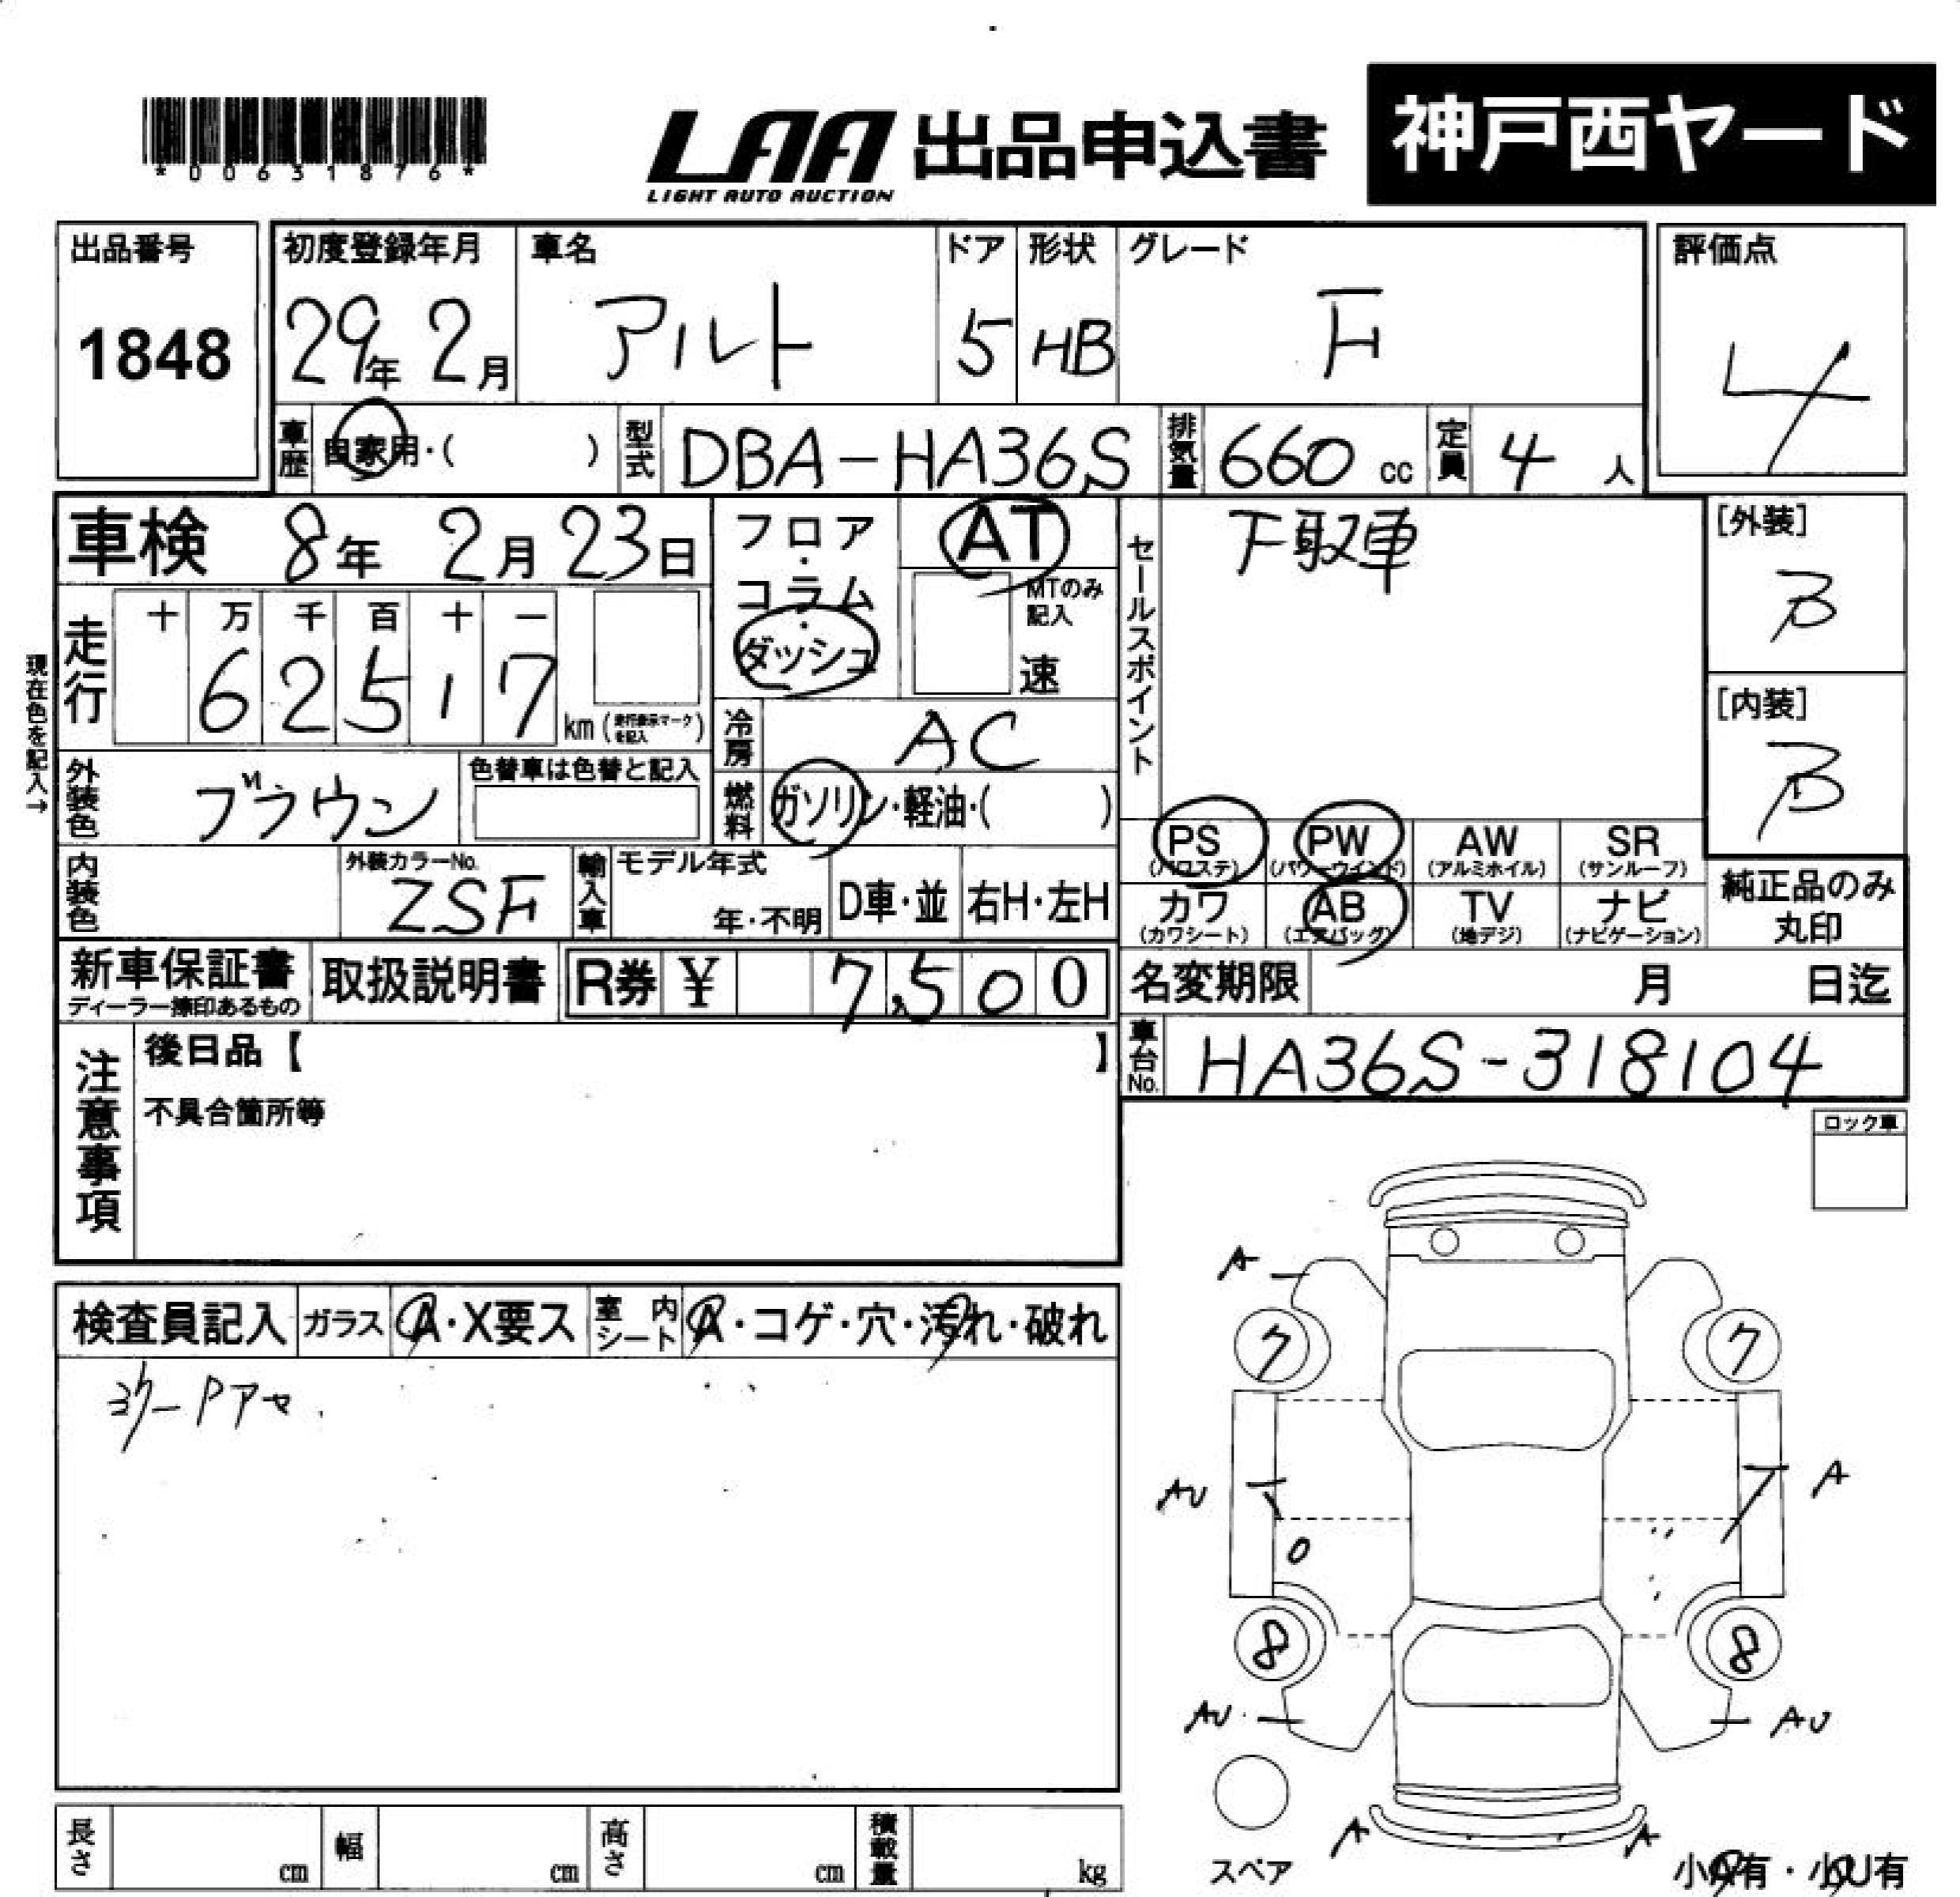 *00631876*
LAA 出品申込書 神戸西ヤード
LIGHT AUTO AUCTION
出品番号 1848
初度登録年月 29年 2月
車名 アルト
ドア 5
形状 HB
グレード F
評価点 4
車歴 自家用・( )
型式 DBA-HA36S
排気量 660 cc
定員 4 人
車検 8年 2月 23日
フロア・コラム・ダッシュ
AT
MTのみ記入
速
セールスポイント 下取車
[外装] B
[内装] B
現在色を記入→
走行 十 万 千 百 十 一
6 2 5 1 7 km (走行表示マークを記入)
冷房 AC
燃料 ガソリン・軽油・( )
外装色 ブラウン
色替車は色替と記入
内装色
外装カラーNo. ZSF
輸入車 モデル年式 年・不明 D車・並 右H・左H
PS (パワステ) PW (パワーウインド) AW (アルミホイル) SR (サンルーフ)
カワ (カワシート) AB (エアバッグ) TV (地デジ) ナビ (ナビゲーション)
純正品のみ丸印
新車保証書 ディーラー捺印あるもの
取扱説明書
R券 ¥ 7,500
名変期限 月 日迄
車台No. HA36S-318104
注意事項
後日品【 】
不具合箇所等
ロック車
検査員記入 ガラス A・X要ス 室内シート A・コゲ・穴・汚れ・破れ
A
7 7
AU A
0
8 8
AU AU
A A
スペア
小A有・小U有
長さ cm 幅 cm 高さ cm 積載量 kg